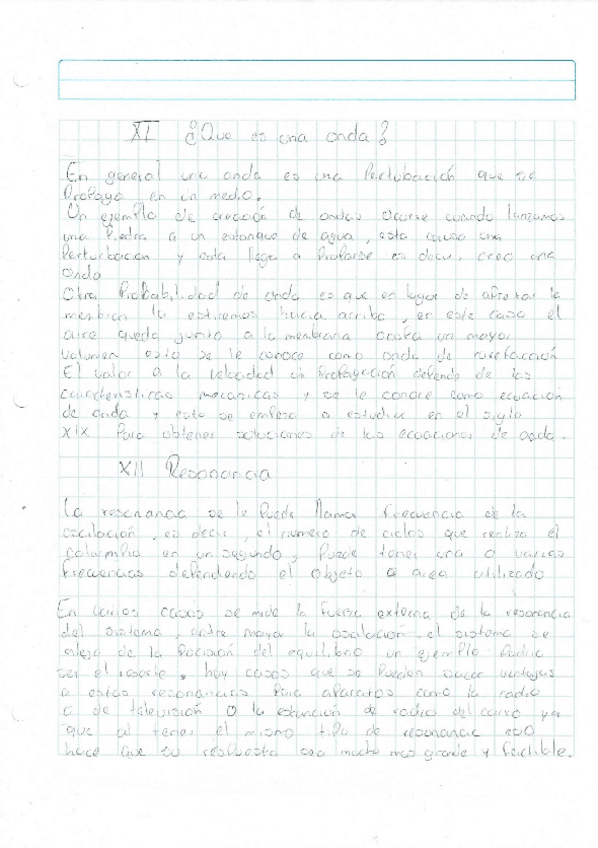 XI ¿Que es una onda?
En general una onda es una Pertubación que se
Propaga en un medio.
Un ejemplo de creación de ondas ocurre cuando lanzamos
una Piedra a un estanque de agua, esta causa una
Perturbacion y esta llega a es decir, crea una
onda
Otra Probabilidad de onda es que en lugar de apretar la
la estiremos hacia arriba, en este caso el
aire queda junto a la membrana ocupa un mayor
volumen esto se le conoce como onda de rarefacción
El valor a la velocidad de Propagación depende de las
caracteristicas mecanicas y se le conoce como ecuación
de onda y esto se empezo a estudiar en el siglo
XIX Para obtener soluciones de las ecuaciones de onda.
XII Resonancia
La resonancia se le Puede llamar frecuencia de la
oscilación, es decir, el numero de ciclos que realiza el
columpio en un segundo, Puede tener una o varias
frecuencias dependiendo el objeto o area utilizado
En varios casos se mide la fuerza externa de la resonancia
del sistema, entre mayor la oscilación el sistema se
aleja de la Posición del equilibrio un ejemplo Podria
ser el resorte, hay casos que se Pueden sacar ventajas
a estas resonancias Para aparatos como la radio
o de televisión o la estación de radio del carro ya
que al tener el mismo tipo de resonancia
hace que su respuesta sea mucho mas grande y factible.